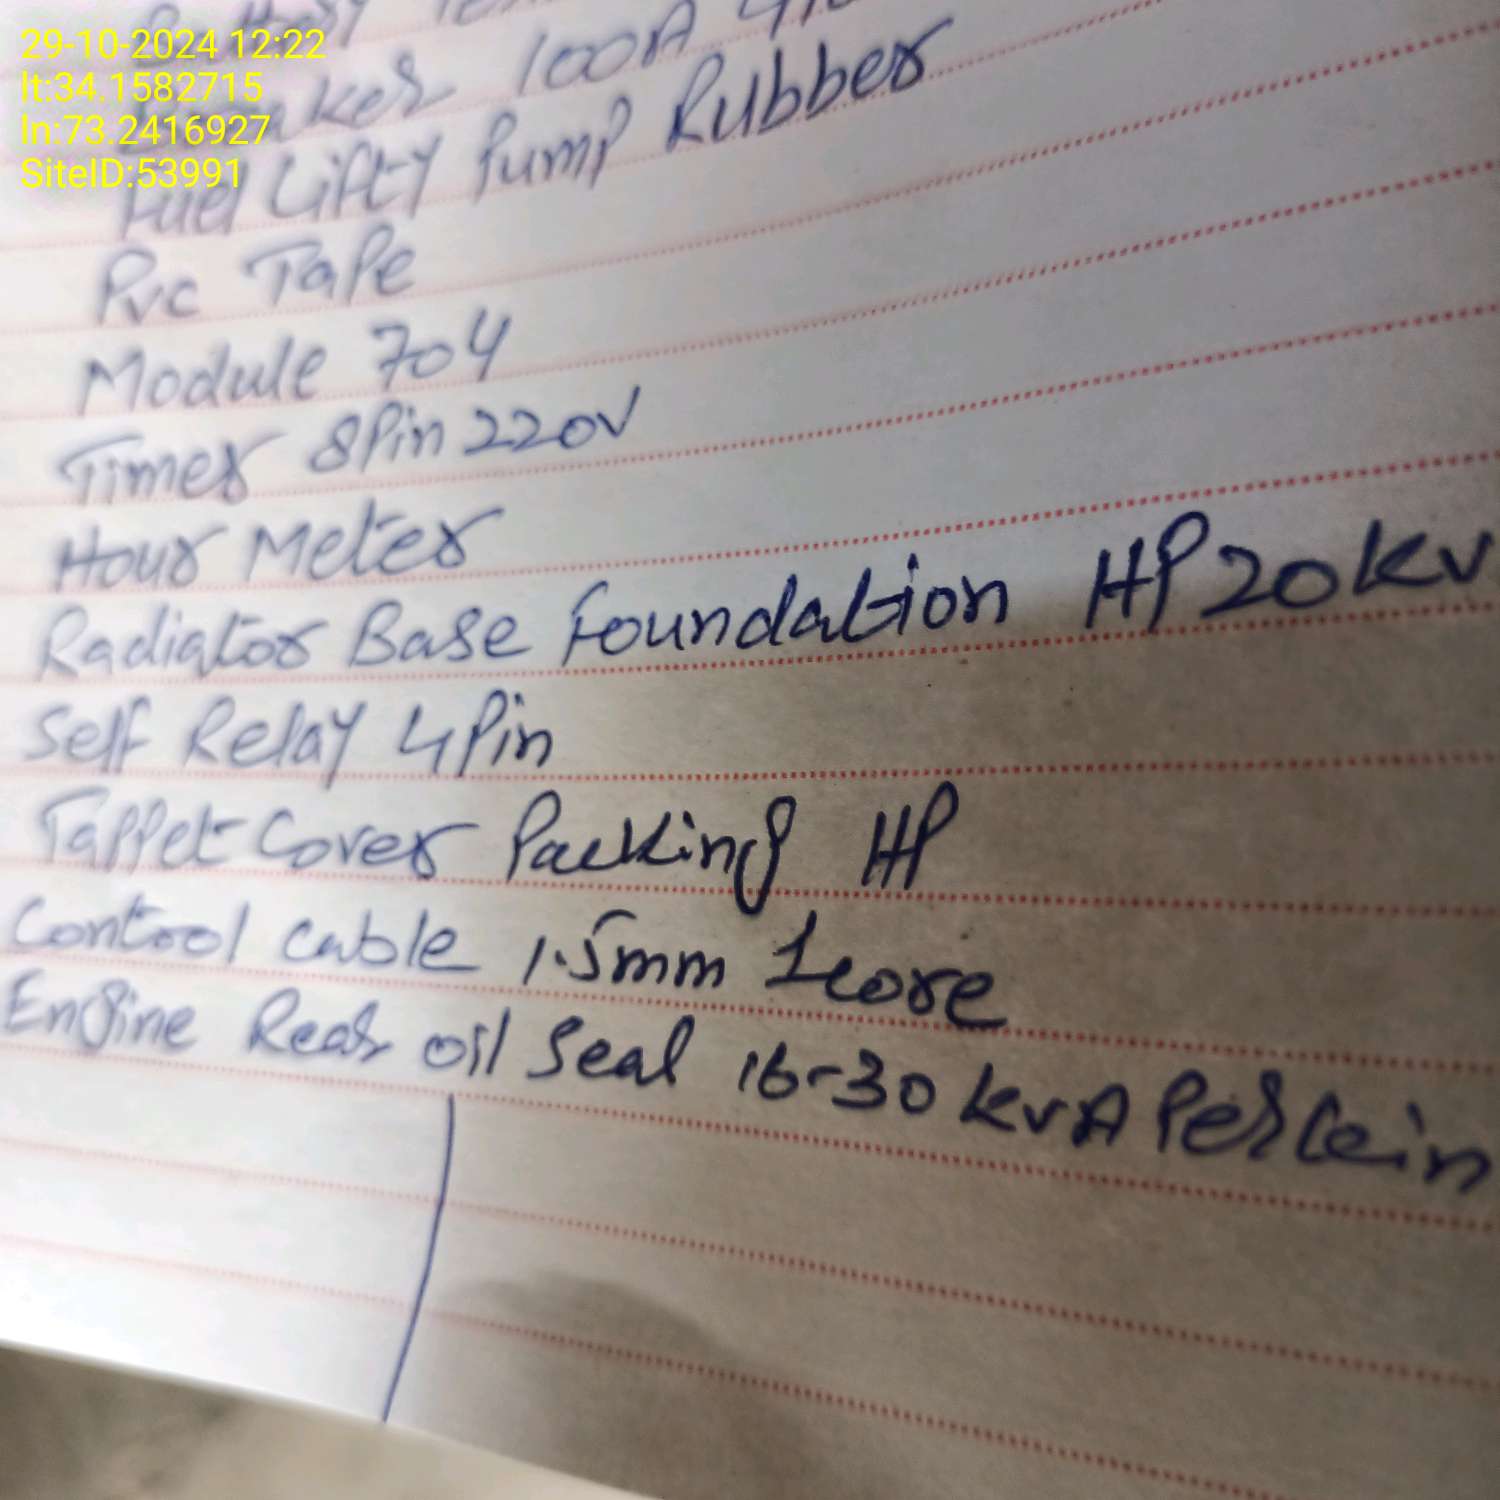 29-10-2024 12:22
lt:34.1582715
ln:73.2416927
SiteID:53991
100A
Fuel Lifty Pump Rubber
Pvc Tape
Module 704
Timer 8Pin 220V
Hour Meter
Radiator Base Foundation HP 20kv
Self Relay 4Pin
Tappet Cover Packing HP
Control Cable 1.5mm 1core
Engine Rear oil Seal 16-30 kvA Perkin